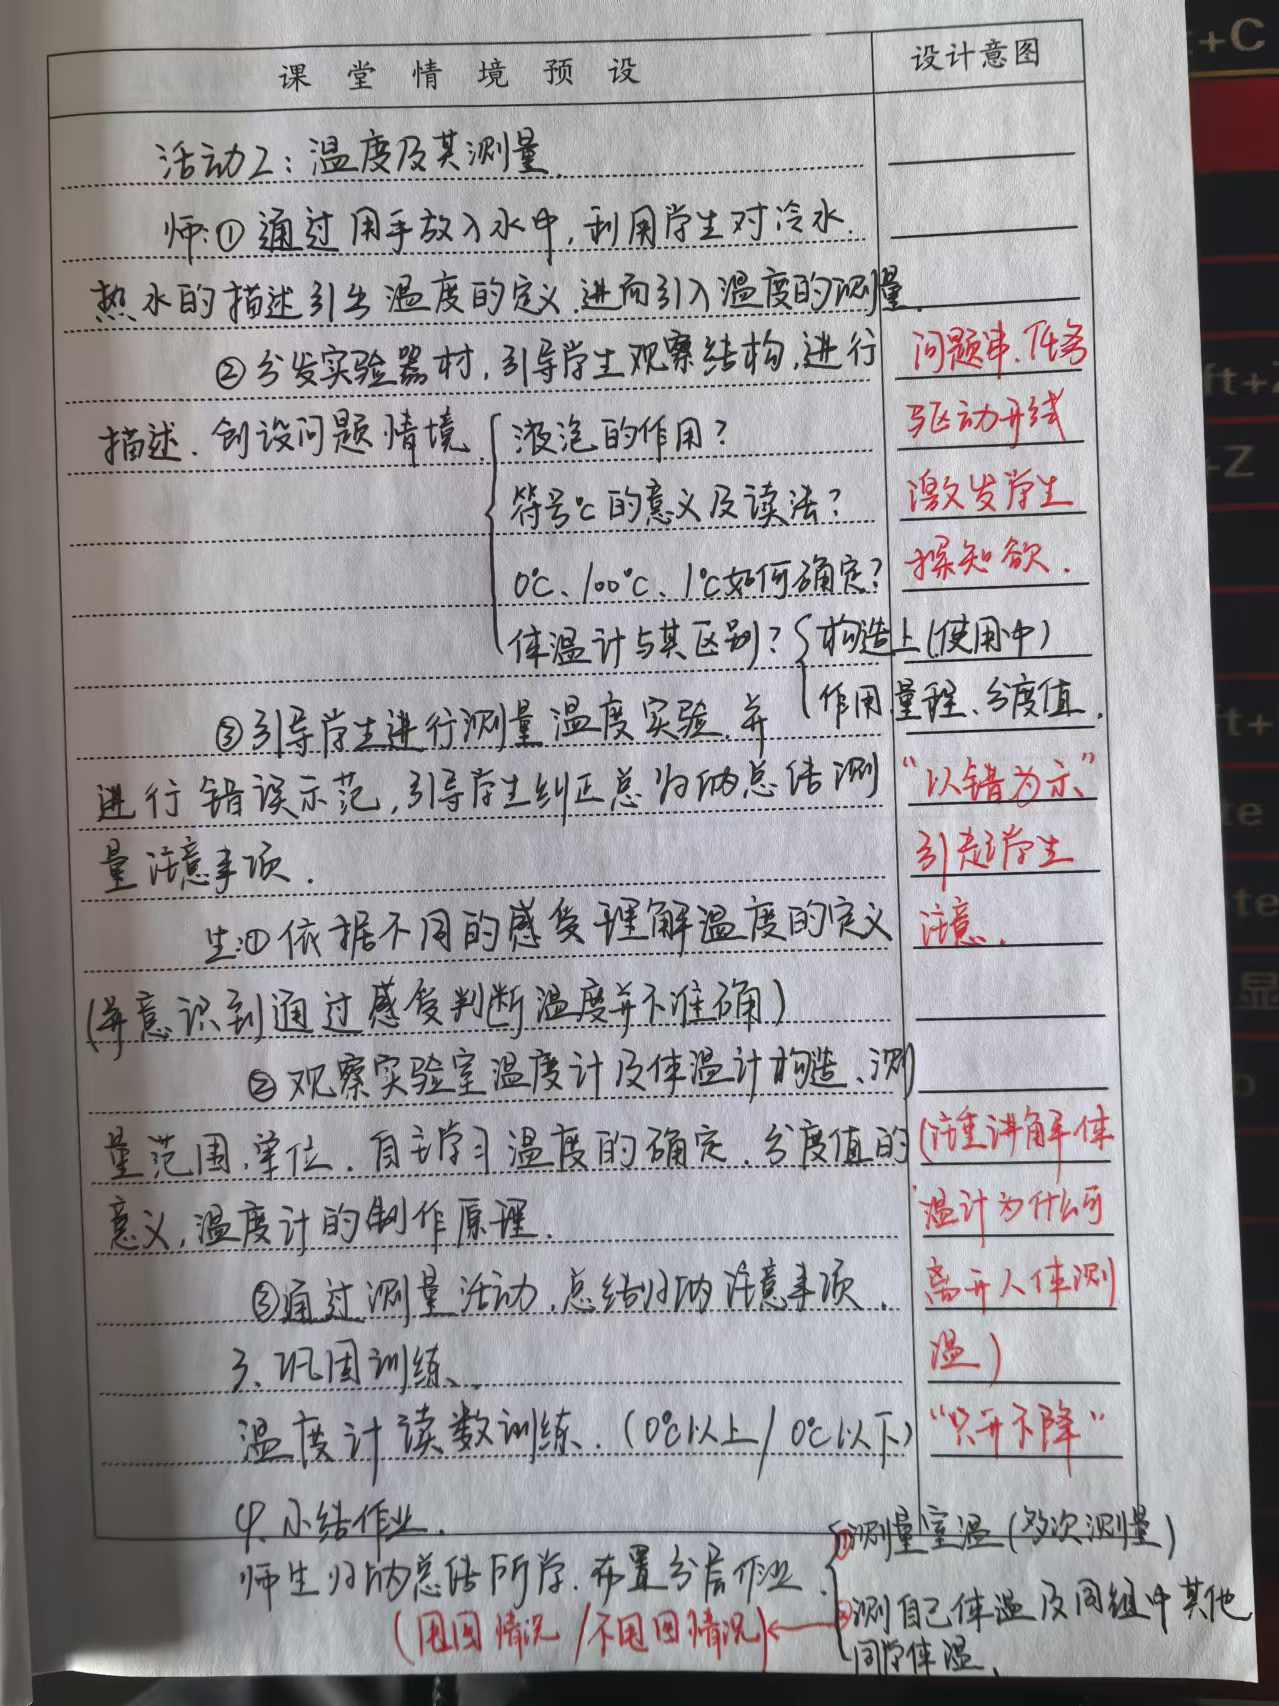 课堂情境预设
设计意图
活动2：温度及其测量.
师:①通过用手放入水中,利用学生对冷水.
热水的描述引出温度的定义.进而引入温度的测量.
②分发实验器材,引导学生观察结构,进行
问题串.任务
描述.创设问题情境.
液泡的作用?
驱动开线
符号℃的意义及读法?
激发学生
0℃、100℃、1℃如何确定?
探知欲.
体温计与其区别?
构造上(使用中)
作用.量程、分度值.
③引导学生进行测量温度实验.并
进行错误示范,引导学生纠正总归纳总结测
"以错为示"
量注意事项.
引起学生
生:①依据不同的感受理解温度的定义
注意.
(并意识到通过感受判断温度并不准确)
②观察实验室温度计及体温计构造、测
量范围,单位.自主学习温度的确定.分度值的
(注重讲解体
意义,温度计的制作原理.
温计为什么可
③通过测量活动.总结归纳注意事项.
离开人体测
3、巩固训练、.
温)
温度计读数训练.(0℃以上/0℃以下)
"只升不降"
4.小结作业.
师生归纳总结所学.布置分层作业.
①测量室温(多次测量)
②测自己体温及同组中其他
同学体温.
(甩回情况/不甩回情况)
C
Z